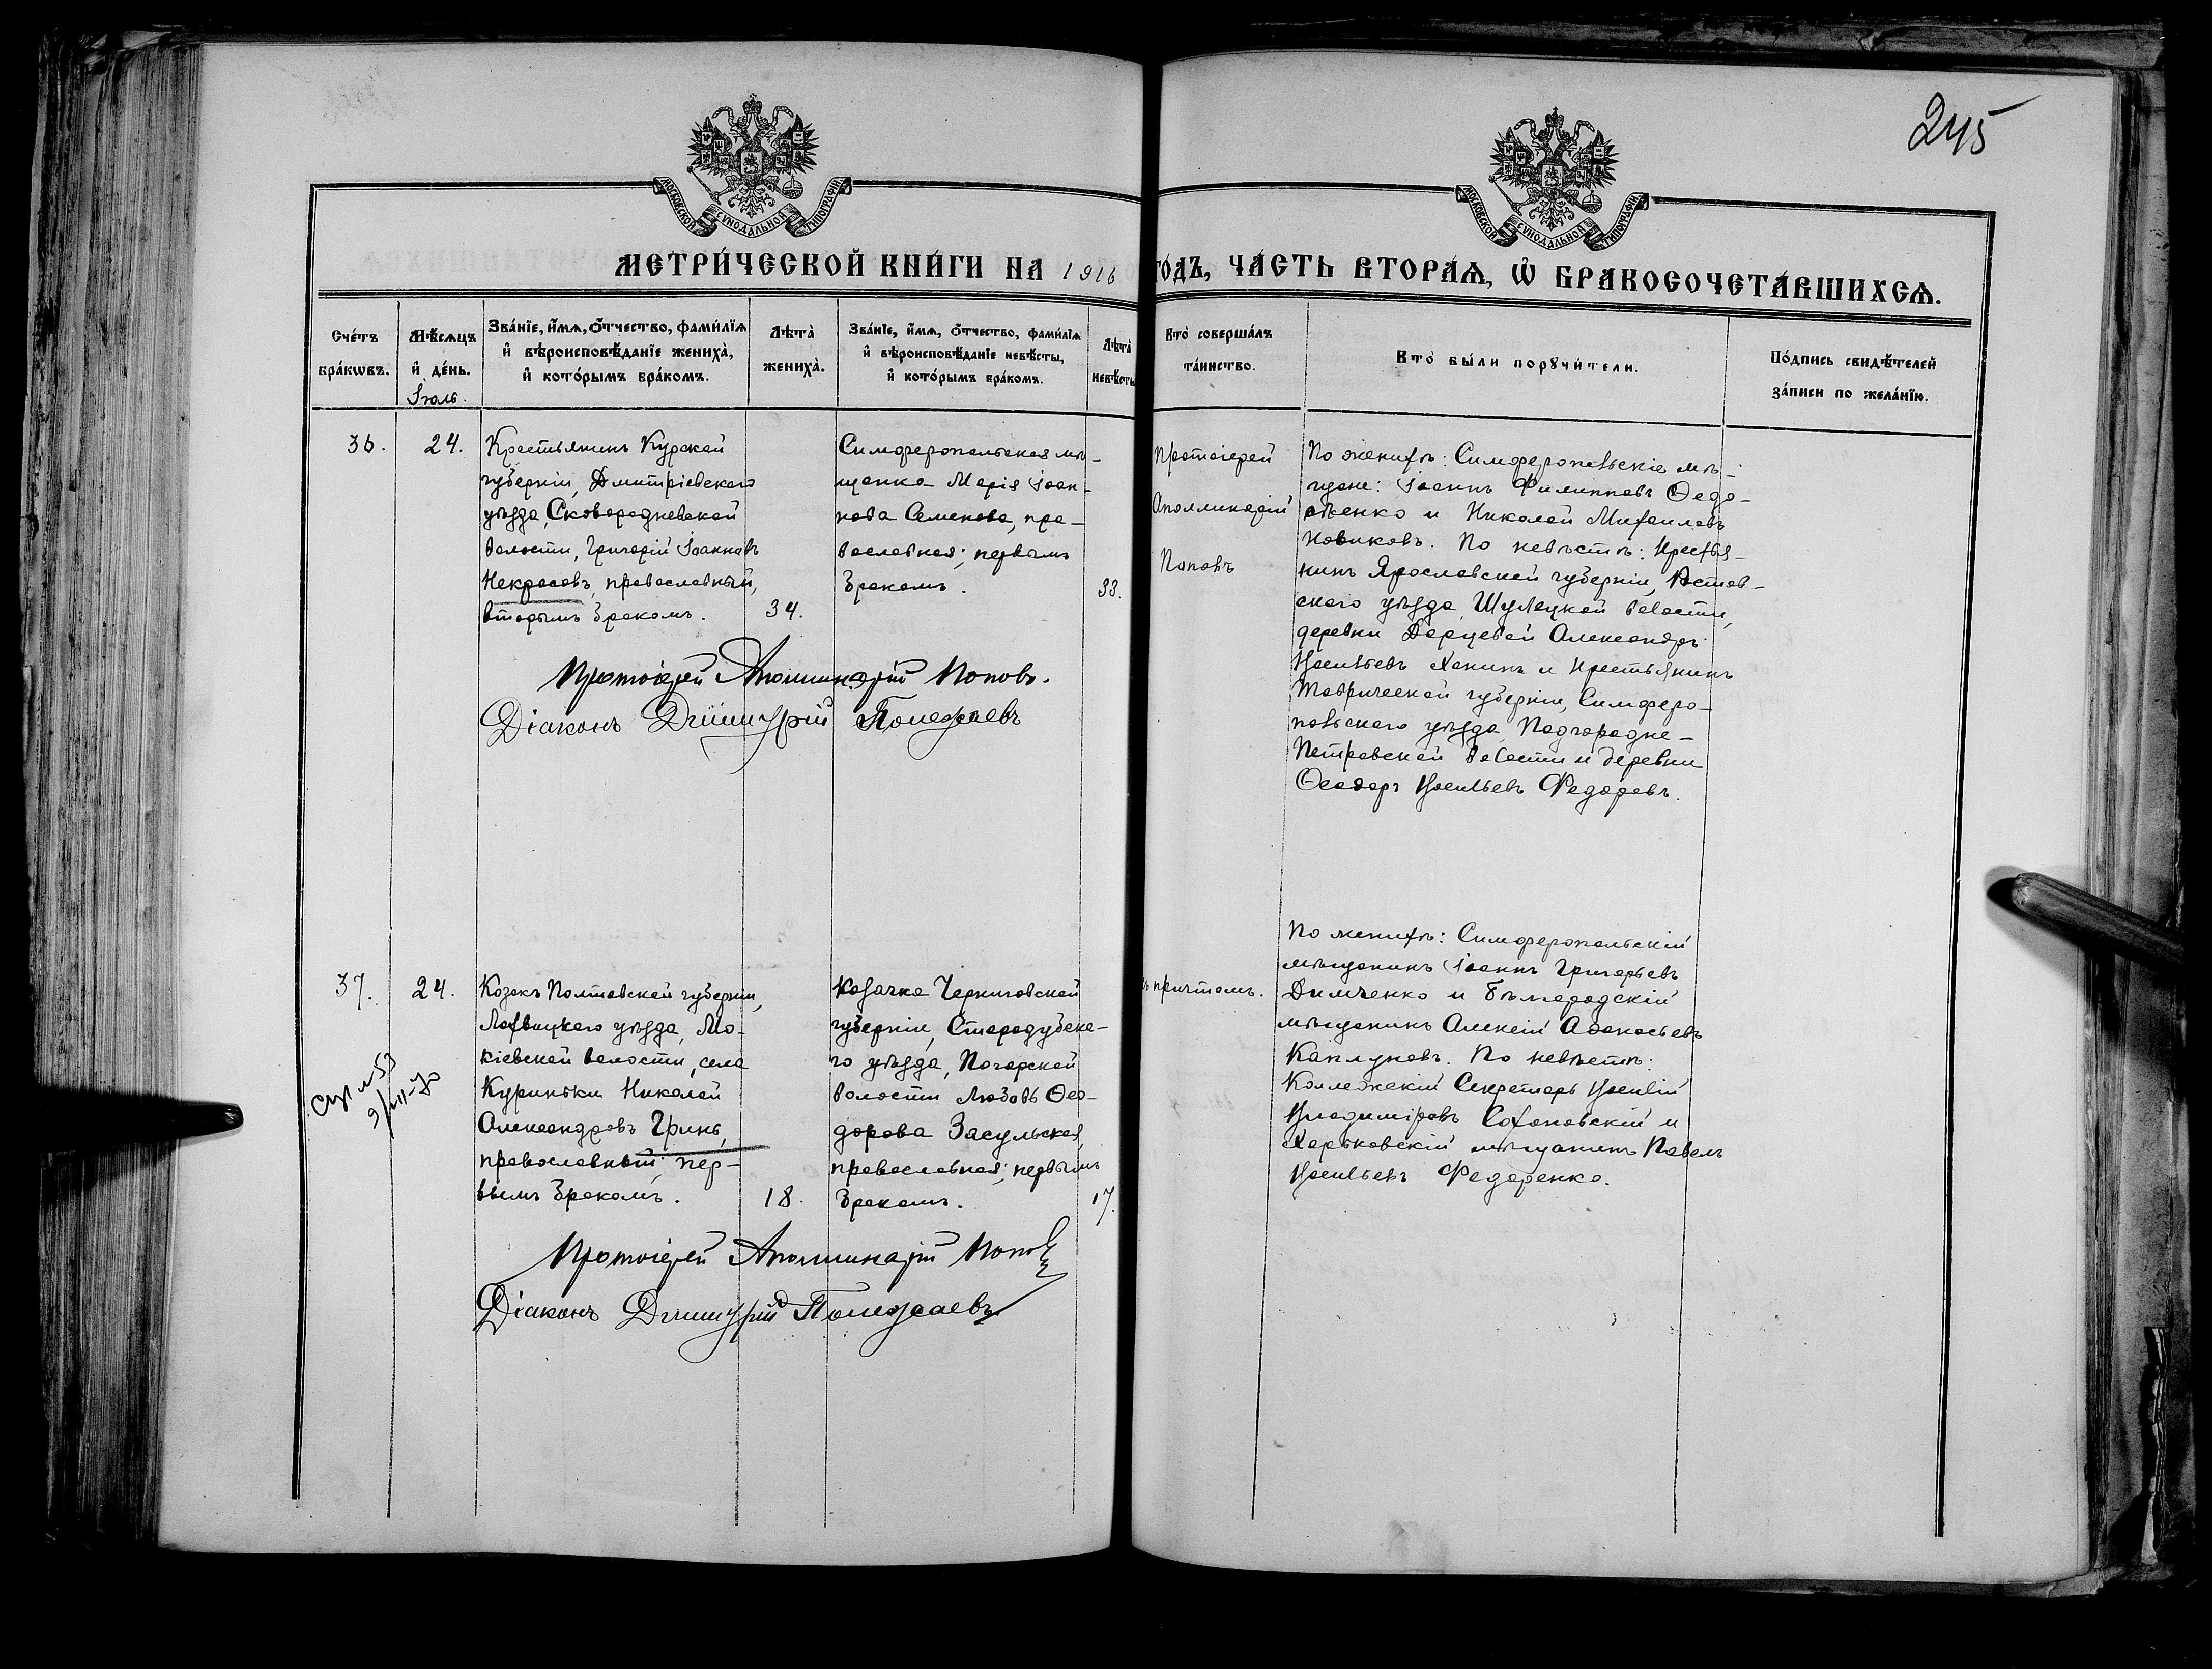 245
МОСКОВСКОЙ СѴНОДАЛЬНОЙ ТИПОГРАФІИ
МОСКОВСКОЙ СѴНОДАЛЬНОЙ ТИПОГРАФІИ
МЕТРИ́ЧЕСКОЙ КНИ́ГИ НА 1916 ГО́ДЪ, ЧА́СТЬ ВТОРА́Ѧ, Ѡ҆ БРАКОСОЧЕТА́ВШИХСѦ.
Сче́тъ бра́кѡвъ.
Мѣ́сѧцъ и҆ де́нь.
Іюль.
Зва́нїе, и҆́мѧ, ѻ҆́тчество, фами́лїѧ
и҆ вѣроисповѣ́данїе жениха̀,
и҆ кото́рымъ бра́комъ.
Лѣта̀ жениха̀.
Зва́нїе, и҆́мѧ, ѻ҆́тчество, фами́лїѧ
и҆ вѣроисповѣ́данїе невѣ́сты,
и҆ кото́рымъ бра́комъ.
Лѣта̀ невѣ́сты
Кто̀ соверша́лъ
та́инство.
Кто̀ бы́ли порꙋчи́тели.
По́дпись свидѣ́телей
за́писи по жела́нїю.
36.
24.
Крестьянинъ Курской
губерніи, Дмитріевскаго
уѣзда, Сковородневской
волости, Григорій Іоанновъ
Некрасовъ, православный,
вторымъ бракомъ.
34.
Симферопольская мѣ-
щанка Марія Іоан-
нова Семенова, пра-
вославная; первымъ
бракомъ.
33.
Протоіерей
Аполлинарій
Поповъ
По женихѣ: Симферопольскіе мѣ-
щане: Іоаннъ Филипповъ Ѳедо-
сѣенко и Николай Михаиловъ
Новиковъ. По невѣстѣ: Крестья-
нинъ Ярославской губерніи, Ростов-
скаго уѣзда, Шулецкой волости,
деревни Дерцевой Александръ
Васильевъ Ханинъ и Крестьянинъ
Таврической губерніи, Симферо-
польскаго уѣзда, Подгородне-
Петровской волости и деревни
Ѳеодоръ Васильевъ Федоровъ.
Протоіерей Аполлинарій Поповъ.
Діаконъ Димитрій Полежаевъ
37.
24.
Козакъ Полтавской губерніи,
Лохвицкаго уѣзда, Мо-
кіевской волости, села
Куриньки Николай
Александровъ Гринь,
православный; пер-
вымъ бракомъ.
18.
Козачка Черниговской
губерніи, Стародубска-
го уѣзда, Погарской
волости Любовь Ѳео-
дорова Засульская,
православная; первымъ
бракомъ.
17.
причтомъ.
По женихѣ: Симферопольскій
мѣщанинъ Іоаннъ Григорьевъ
Димченко и Бѣлгородскій
мѣщанинъ Алексій Аѳанасьевъ
Каплуновъ. По невѣстѣ:
Коллежскій Секретарь Василій
Владиміровъ Сохановскій и
Харьковскій мѣщанинъ Павелъ
Васильевъ Федоренко.
Протоіерей Аполлинарій Поповъ
Діаконъ Димитрій Полежаевъ